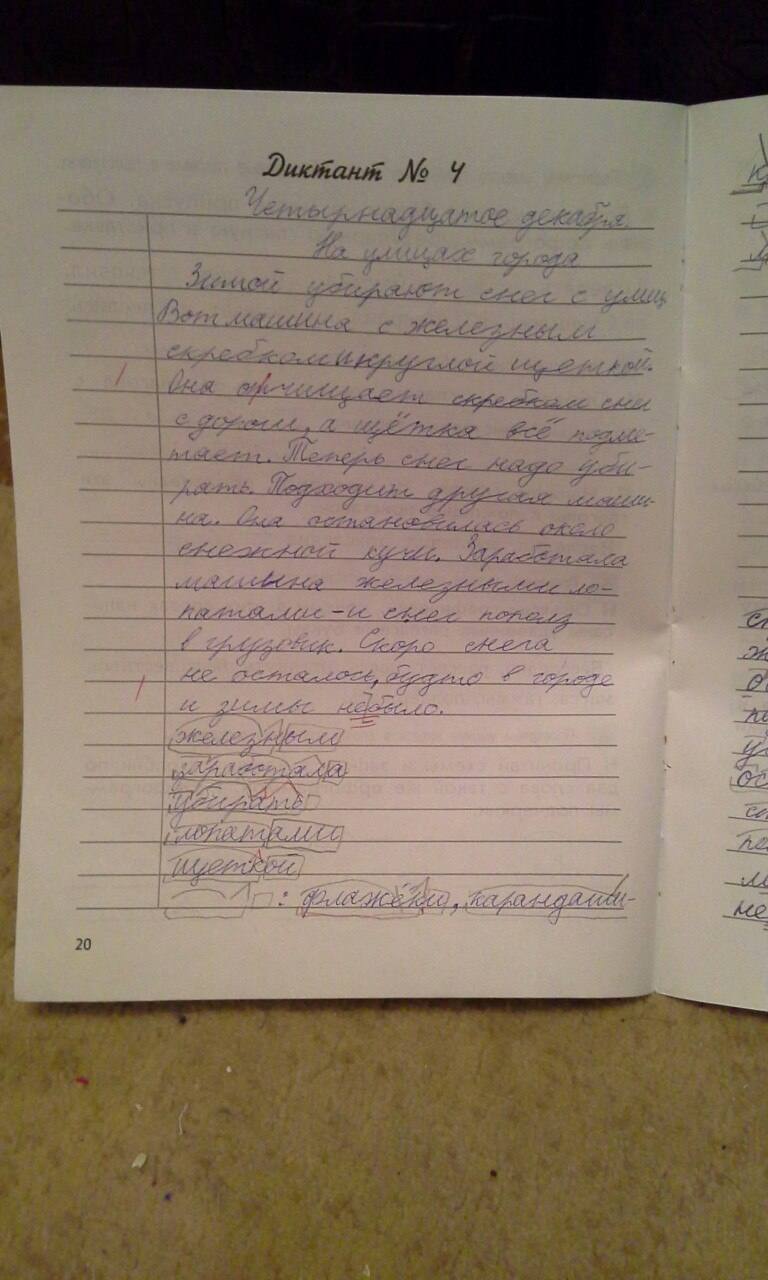 Диктант № 4
Четырнадцатое декабря.
На улицах города
Зимой убирают снег с улиц
Вот машина с железным
скребком и круглой щеткой.
Она очищает скребком снег
с дороги, а щётка всё подме-
тает. Теперь снег надо уби-
рать. Подходит другая маши-
на. Она остановилась около
снежной кучи. Заработала
машина железными ло-
патами - и снег пополз
в грузовик. Скоро снега
не осталось, будто в городе
и зимы небыло.
железным
заработала
убирать
лопатами
щеткой
: флажёки, карандаши-
20